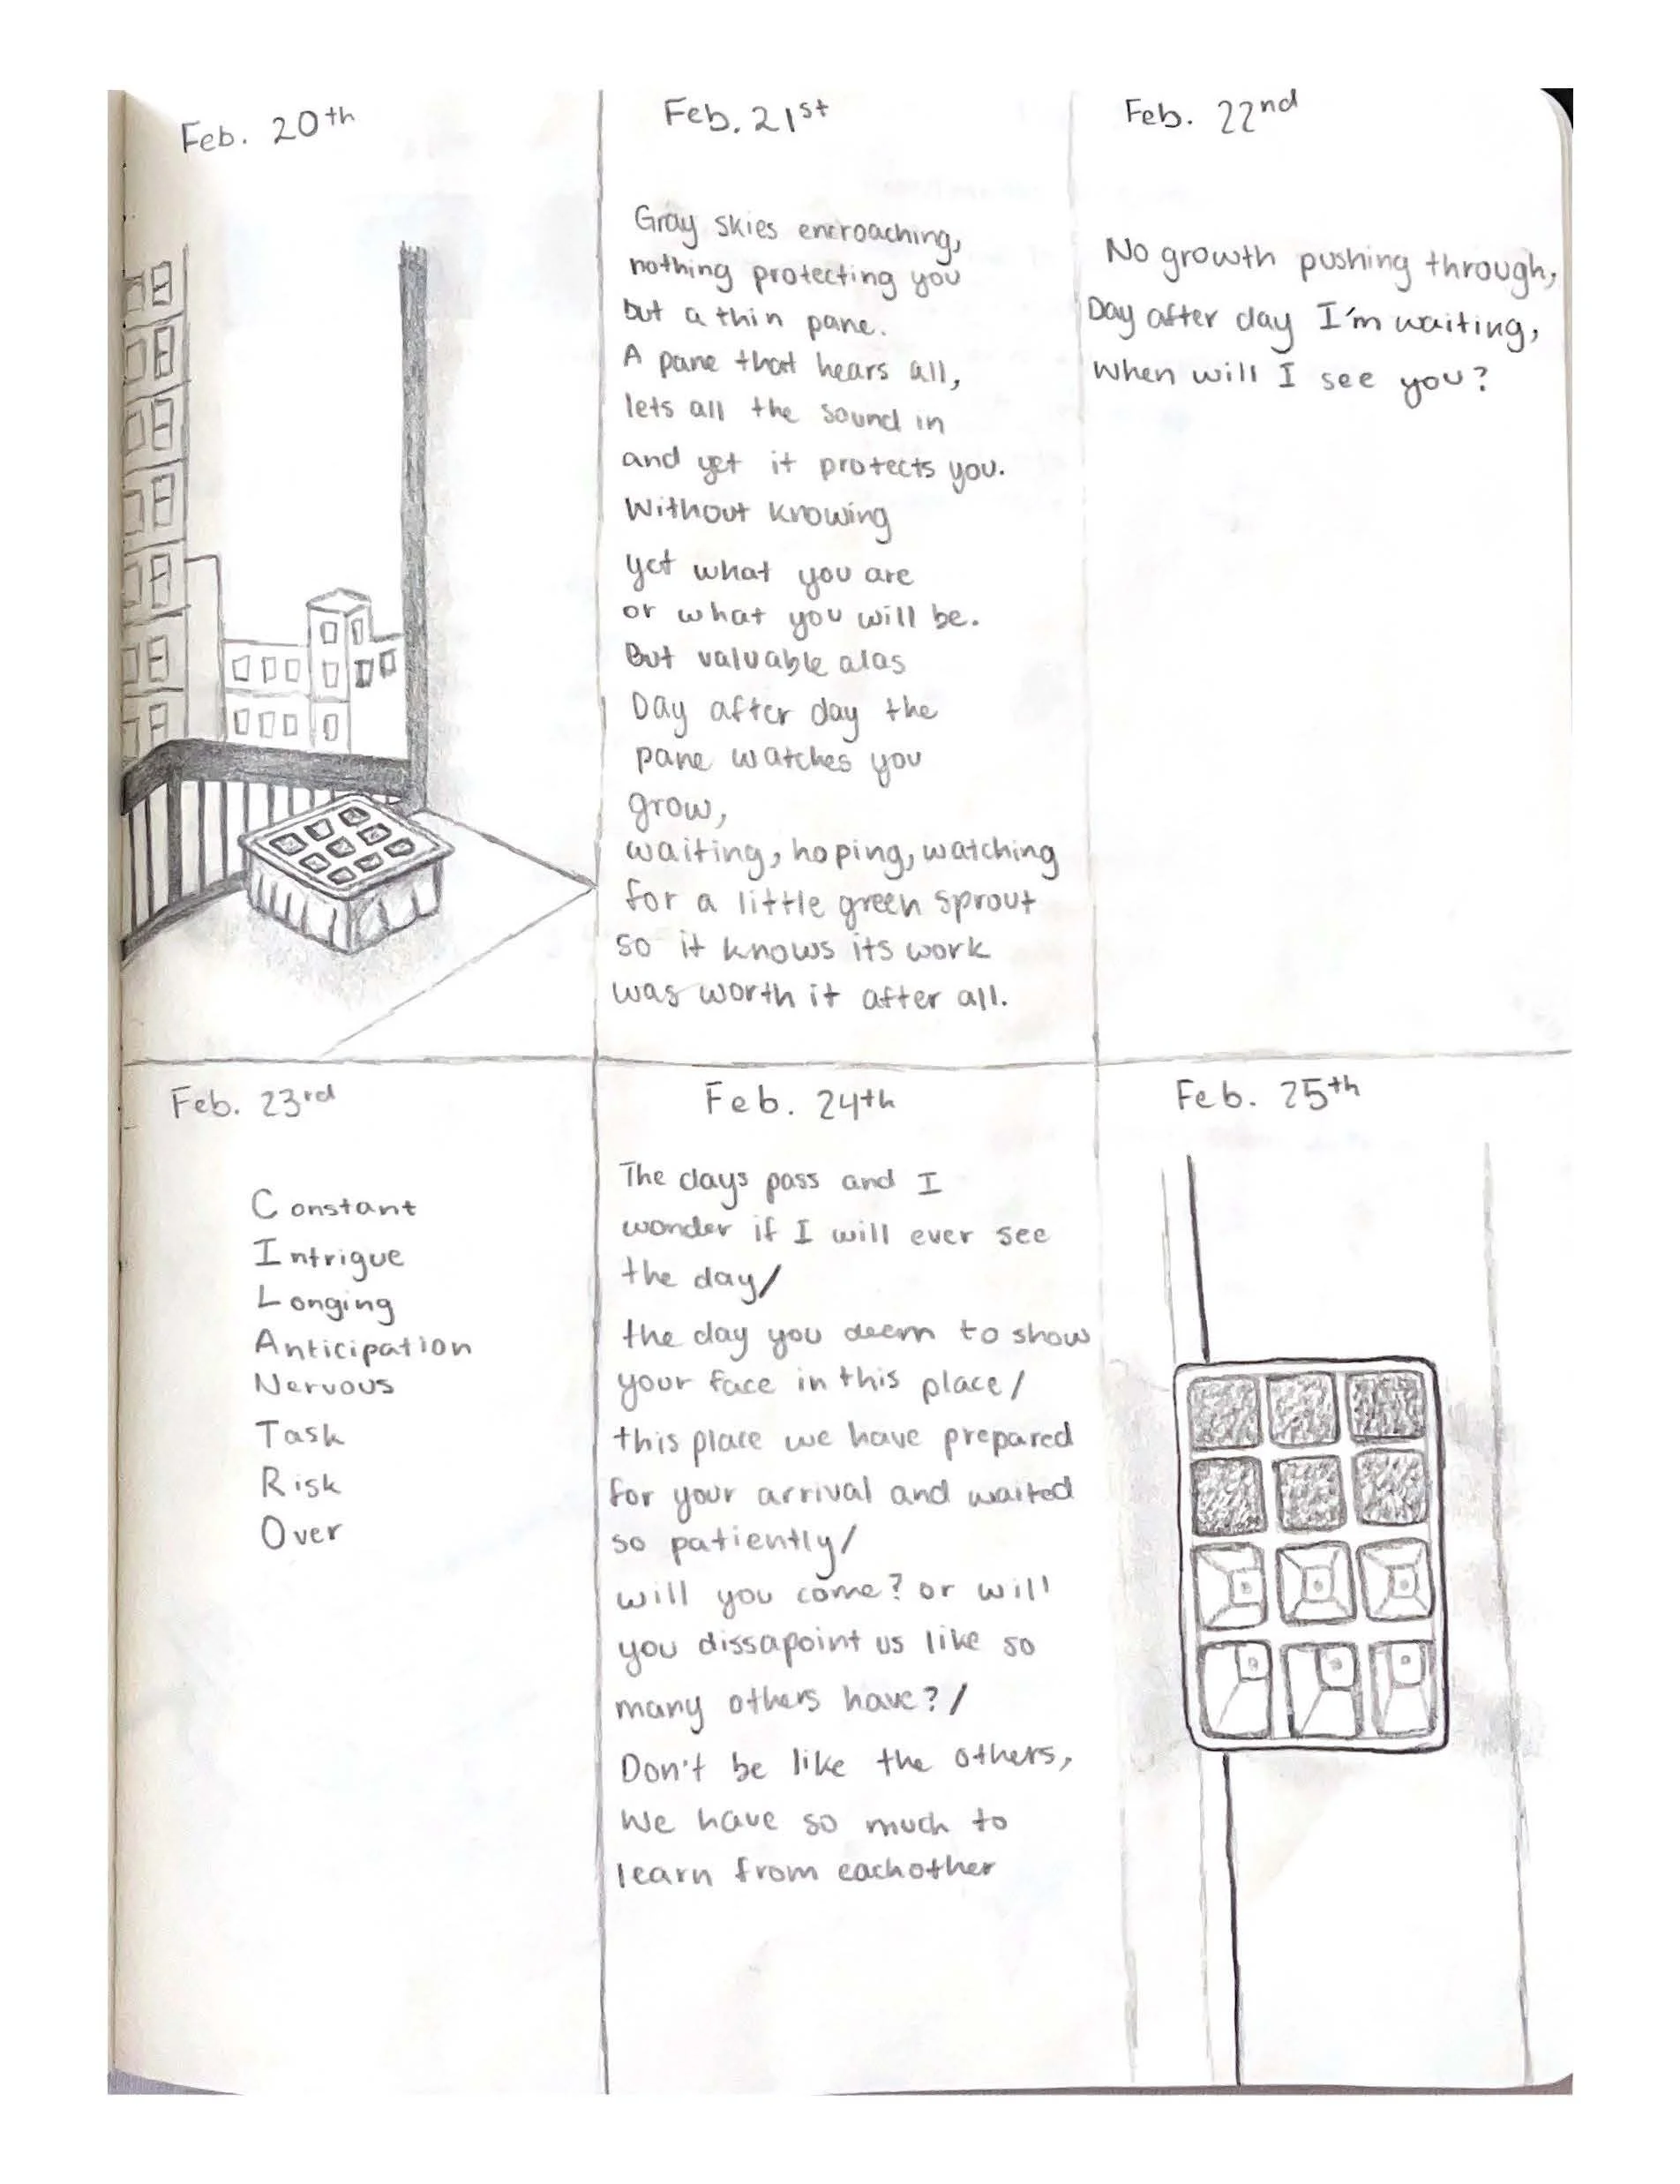 Feb. 20th
Feb. 21st
Gray skies encroaching,
nothing protecting you
but a thin pane.
A pane that hears all,
lets all the sound in
and yet it protects you.
Without knowing
yet what you are
or what you will be.
But valuable alas
Day after day the
pane watches you
grow,
waiting, hoping, watching
for a little green sprout
so it knows its work
was worth it after all.
Feb. 22nd
No growth pushing through,
Day after day I'm waiting,
When will I see you?
Feb. 23rd
Constant
Intrigue
Longing
Anticipation
Nervous
Task
Risk
Over
Feb. 24th
The days pass and I
wonder if I will ever see
the day/
the day you deem to show
your face in this place/
this place we have prepared
for your arrival and waited
so patiently/
will you come? or will
you dissapoint us like so
many others have?/
Don't be like the others,
We have so much to
learn from eachother
Feb. 25th